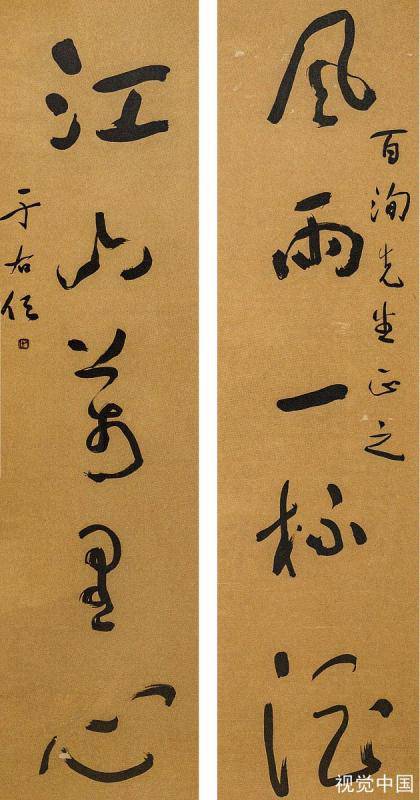 風雨一杯酒
百洵先生正之
江山萬里心
于右任
视觉中国